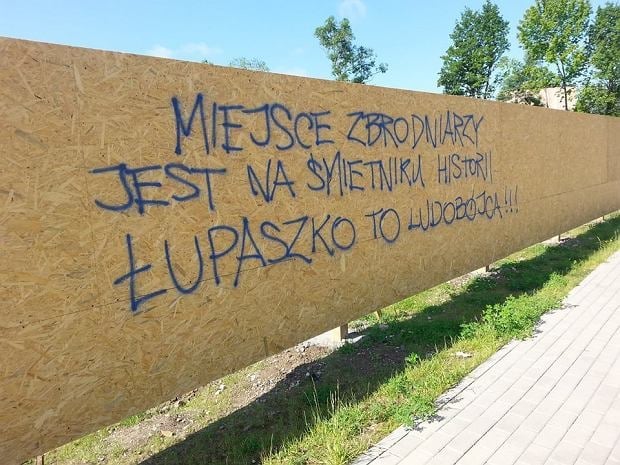 MIEJSCE ZBRODNIARZY
JEST NA ŚMIETNIKU HISTORII
ŁUPASZKO TO LUDOBÓJCA!!!